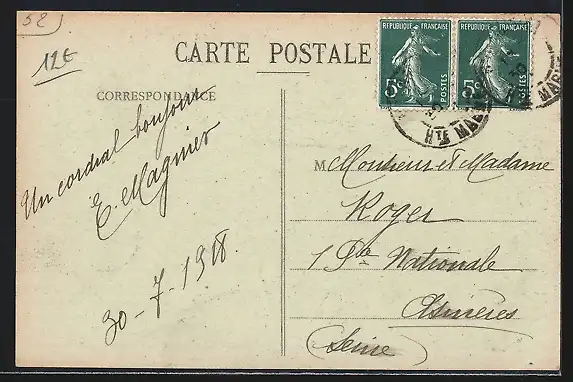 52
12€
CARTE POSTALE
REPUBLIQUE FRANÇAISE
REPUBLIQUE FRANÇAISE
5c
POSTES
5c
POSTES
Hte MARNE
Hte MAR
CORRESPONDANCE
Un cordial bonjour
E. Magnier
30-7-1918
M Monsieur et Madame
Roger
1 Pce Nationale
Asnières
(Seine)